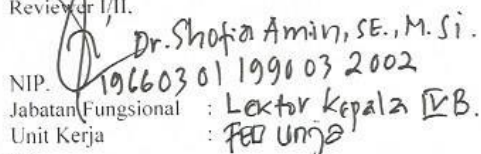 Reviewer I/II.
Dr. Shofia Amin, SE., M.Si.
NIP. 19660301 199003 2002
Jabatan Fungsional : Lektor Kepala IVB.
Unit Kerja : FEB Unja